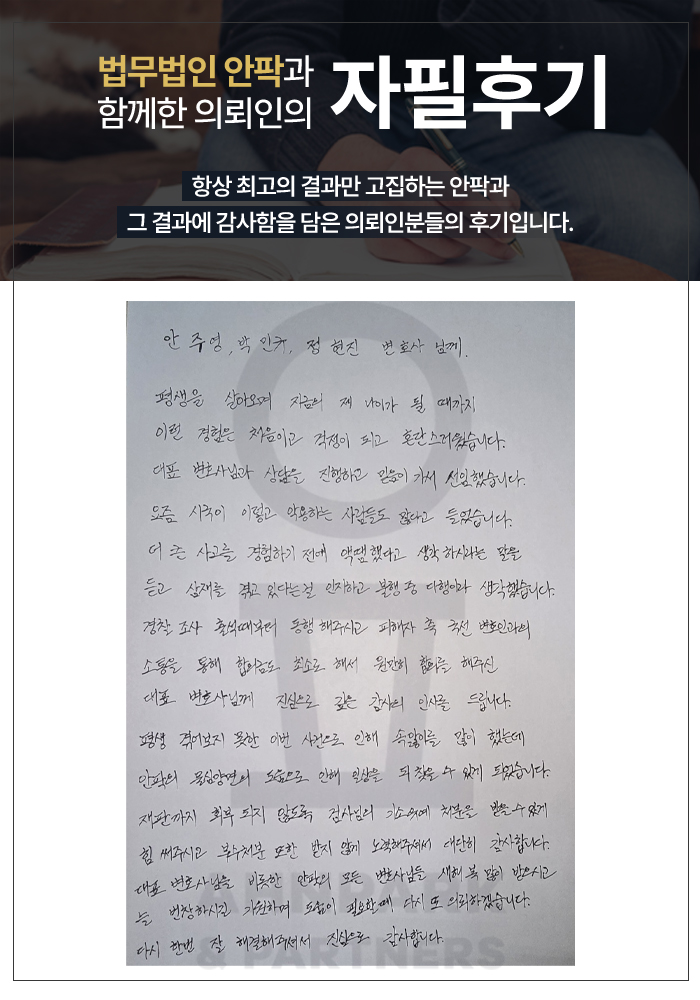 법무법인 안팍과
함께한 의뢰인의
자필후기
항상 최고의 결과만 고집하는 안팍과
그 결과에 감사함을 담은 의뢰인분들의 후기입니다.
안주영, 박민규, 정현진 변호사 님께.
평생을 살아오며 지금의 제 나이가 될 때까지
이런 경험은 처음이고 걱정이 되고 혼란스러웠습니다.
대표 변호사님과 상담을 진행하고 믿음이 가서 선임했습니다.
요즘 시국이 이렇고 악용하는 사람들도 많다고 들었습니다.
더 큰 사고를 경험하기 전에 액땜했다고 생각하시라는 말을
듣고 삼재를 겪고 있다는걸 인지하고 불행 중 다행이라 생각했습니다.
경찰 조사 출석때부터 동행해주시고 피해자 측 국선 변호인과의
소통을 통해 합의금도 최소로 해서 원만히 합의를 해주신
대표 변호사님께 진심으로 깊은 감사의 인사를 드립니다.
평생 겪어보지 못한 이번 사건으로 인해 속앓이를 많이 했는데
안팍의 물심양면의 도움으로 인해 일상을 되찾을 수 있게 되었습니다.
재판까지 회부 되지 않도록 검사님의 기소유예 처분을 받을 수 있게
힘써주시고 부수처분 또한 받지 않게 노력해주셔서 대단히 감사합니다.
대표 변호사님을 비롯한 안팍의 모든 변호사님들 새해 복 많이 받으시고
늘 번창하시길 기원하며 도움이 필요할때 다시 또 의뢰하겠습니다.
다시 한번 잘 해결해주셔서 진심으로 감사합니다.
AHN PARK
& PARTNERS